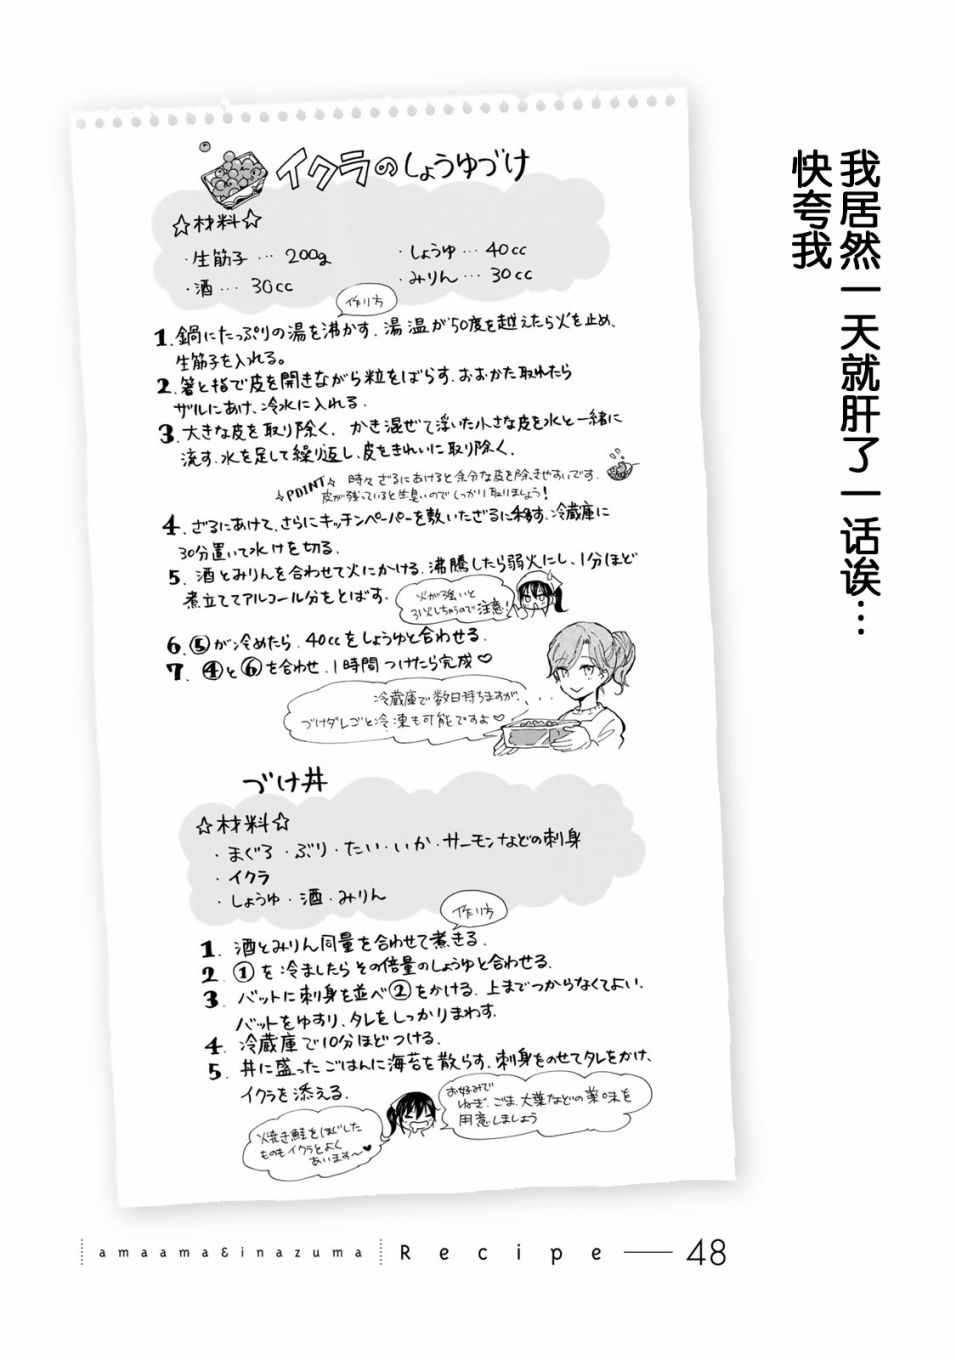 我居然一天就肝了一话诶…
快夸我
イクラのしょうゆづけ
☆材料☆
・生筋子… 200g
・しょうゆ… 40cc
・酒… 30cc
・みりん… 30cc
作り方
1. 鍋にたっぷりの湯を沸かす. 湯温が50度を越えたら火を止め、
生筋子を入れる。
2. 箸と指で皮を開きながら粒をばらす. おおかた取れたら
ザルにあけ、冷水に入れる.
3. 大きな皮を取り除く. かき混ぜて浮いた小さな皮を水と一緒に
流す. 水を足して繰り返し、皮をきれいに取り除く.
☆POINT☆ 時々ざるにあけると余分な皮を除きやすいです.
皮が残っていると生臭いのでしっかり取りましょう!
4. ざるにあけて、さらにキッチンペーパーを敷いたざるに移す. 冷蔵庫に
30分置いて水けを切る.
5. 酒とみりんを合わせて火にかける. 沸騰したら弱火にし、1分ほど
煮立ててアルコール分をとばす.
火が強いと
引火しちゃうので注意!
6. ⑤が冷めたら、40ccをしょうゆと合わせる.
7. ④と⑥を合わせ、1時間つけたら完成♡
冷蔵庫で数日持ちますが、...
づけダレごと冷凍も可能ですよ♡
づけ丼
☆材料☆
・まぐろ・ぶり・たい・いか・サーモンなどの刺身
・イクラ
・しょうゆ・酒・みりん
作り方
1. 酒とみりん同量を合わせて煮きる.
2. ①を冷ましたらその倍量のしょうゆと合わせる.
3. バットに刺身を並べ②をかける. 上までつからなくてよい.
バットをゆすり、タレをしっかりまわす.
4. 冷蔵庫で10分ほどつける.
5. 丼に盛ったごはんに海苔を散らす. 刺身をのせてタレをかけ、
イクラを添える.
お好みで
ねぎ、ごま、大葉などの薬味を
用意しましょう
焼き鮭をほぐした
ものもイクラとよく
あいます～♥
amaama&inazuma Recipe — 48